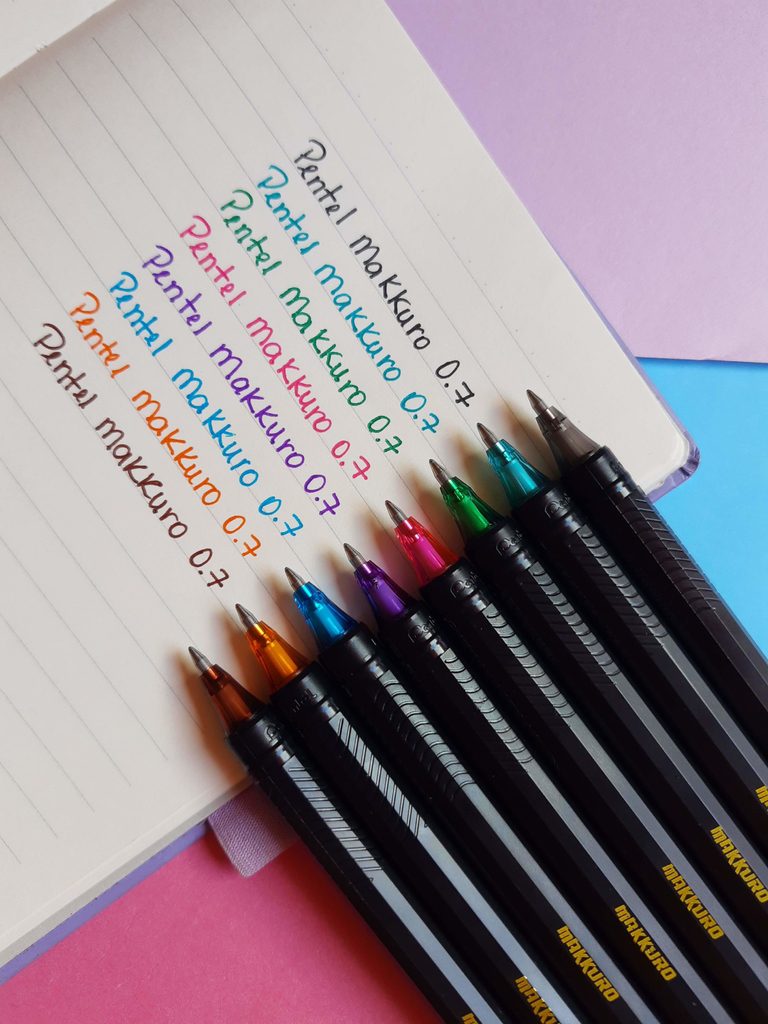 Pentel Makkuro 0.7
Pentel Makkuro 0.7
Pentel Makkuro 0.7
Pentel Makkuro 0.7
Pentel Makkuro 0.7
Pentel Makkuro 0.7
Pentel Makkuro 0.7
Pentel Makkuro 0.7
MAKKURO
MAKKURO
MAKKURO
MAKKURO